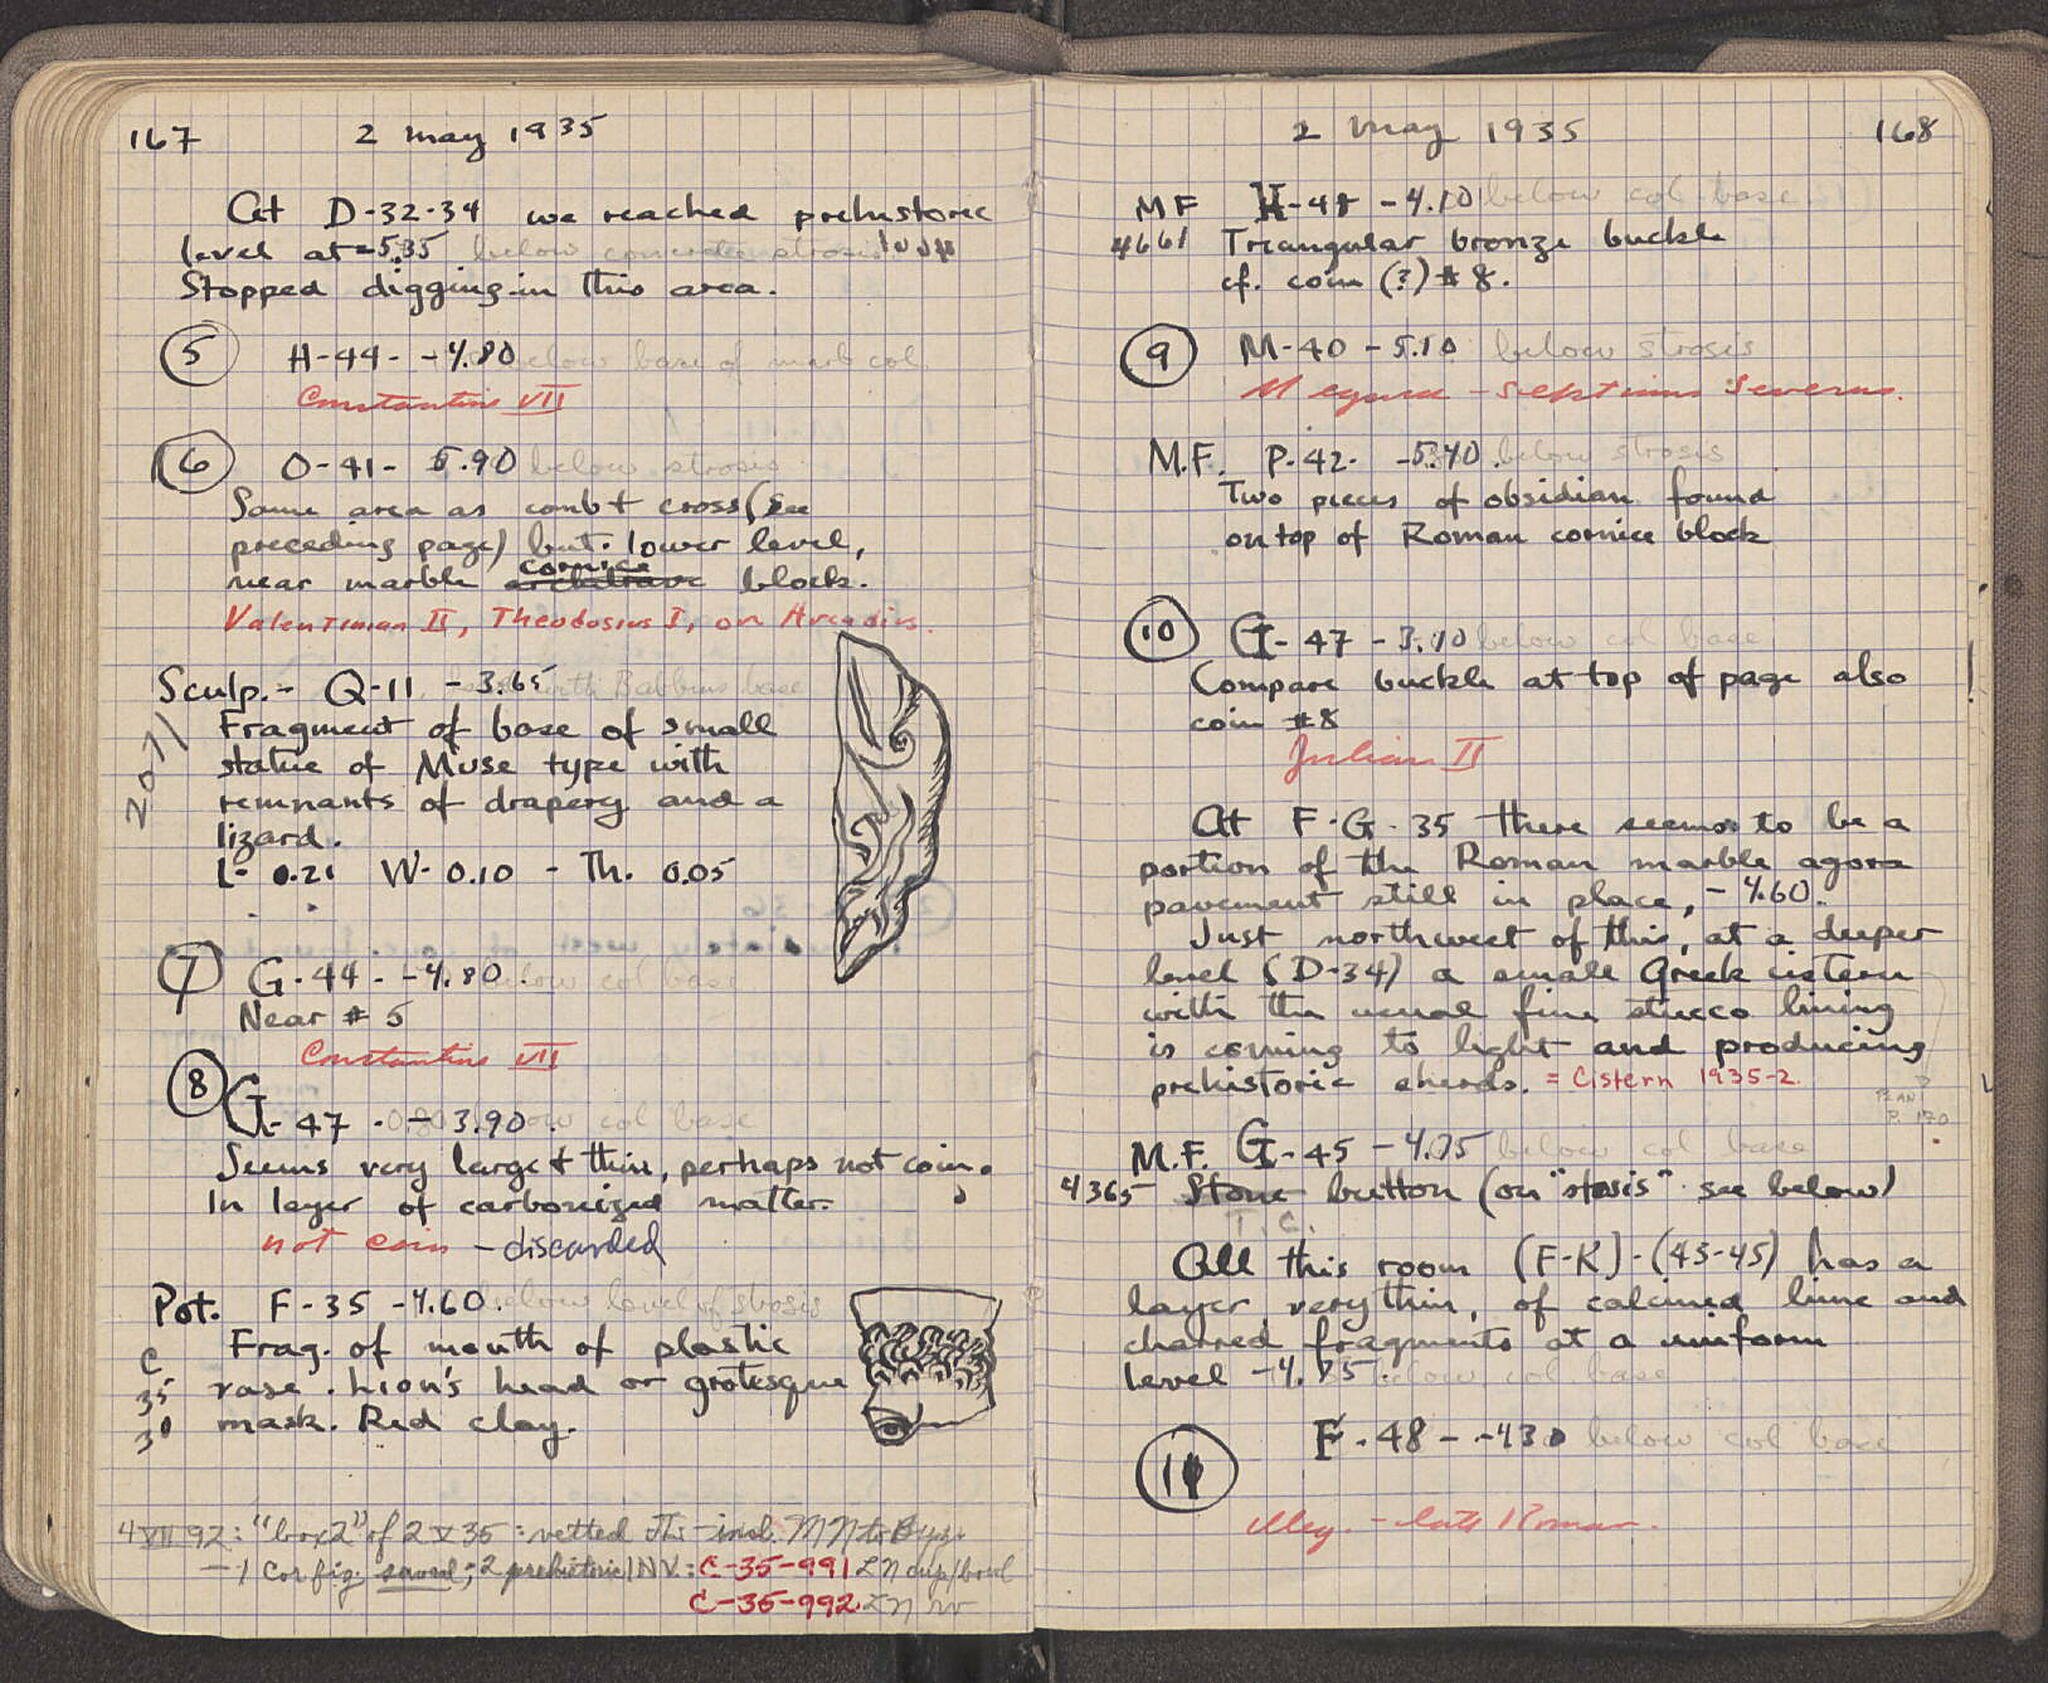 167 2 May 1935
At D-32-34 we reached prehistoric
level at -5.35 below concrete strosis
Stopped digging in this area.
5 H-44- -4.80 below base of marb col.
Constantine VII
6 O-41- 5.90 below strosis
Same area as comb + cross (see
preceding page) but lower level,
near marble cornice block.
Valentinian II, Theodosius I, or Arcadius.
Sculp.- Q-11 -3.65 Babbius base
2071
Fragment of base of small
statue of Muse type with
remnants of drapery and a
lizard.
L- 0.21 W- 0.10 - Th. 0.05
7 G-44- -4.80. below col base
Near # 5
Constantine VII
8 G-47 - -3.90. below col base
Seems very large + thin, perhaps not coin.
In layer of carbonized matter.
not coin - discarded
Pot. F-35 -4.60. below level of strosis
C 35 30
Frag. of mouth of plastic
vase. Lion's head or grotesque
mask. Red clay.
4 VII 92: "box 2" of 2 V 35: vetted incl. MN to Byz.
- 1 Cor fig. saved; 2 prehistoric INV.: C-35-991 LN cup/bowl
C-35-992
2 May 1935 168
MF H-48 -4.10 below col base
4661 Triangular bronze buckle
cf. coin (?) # 8.
9 M-40 -5.10 below strosis
Megara - Septimius Severus.
M.F. P-42- -5.40. below strosis
Two pieces of obsidian found
on top of Roman cornice block
10 G-47 -3.90 below col base
Compare buckle at top of page also
coin #8
Julian II
At F-G-35 there seems to be a
portion of the Roman marble agora
pavement still in place, -4.60.
Just northwest of this, at a deeper
level (D-34) a small Greek cistern
with the usual fine stucco lining
is coming to light and producing
prehistoric sherds. = Cistern 1935-2.
PLAN P. 170
M.F. G-45 -4.75 below col base
4365 Stone button (on "stosis" see below)
T.C.
All this room (F-K)-(43-45) has a
layer, very thin, of calcined lime and
charred fragments at a uniform
level -4.75. below col base
11 F-48- -4.30 below col base
illeg. - late Roman.